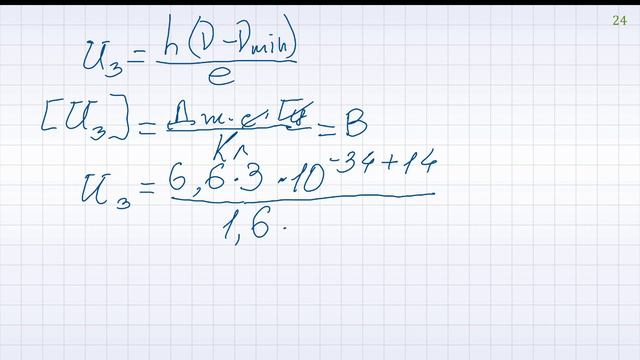 24
U₃ = h(D - Dmin) / e
[U₃] = Дж·с·Гц / Кл = В
U₃ = 6,6·3·10⁻³⁴⁺¹⁴ / 1,6·